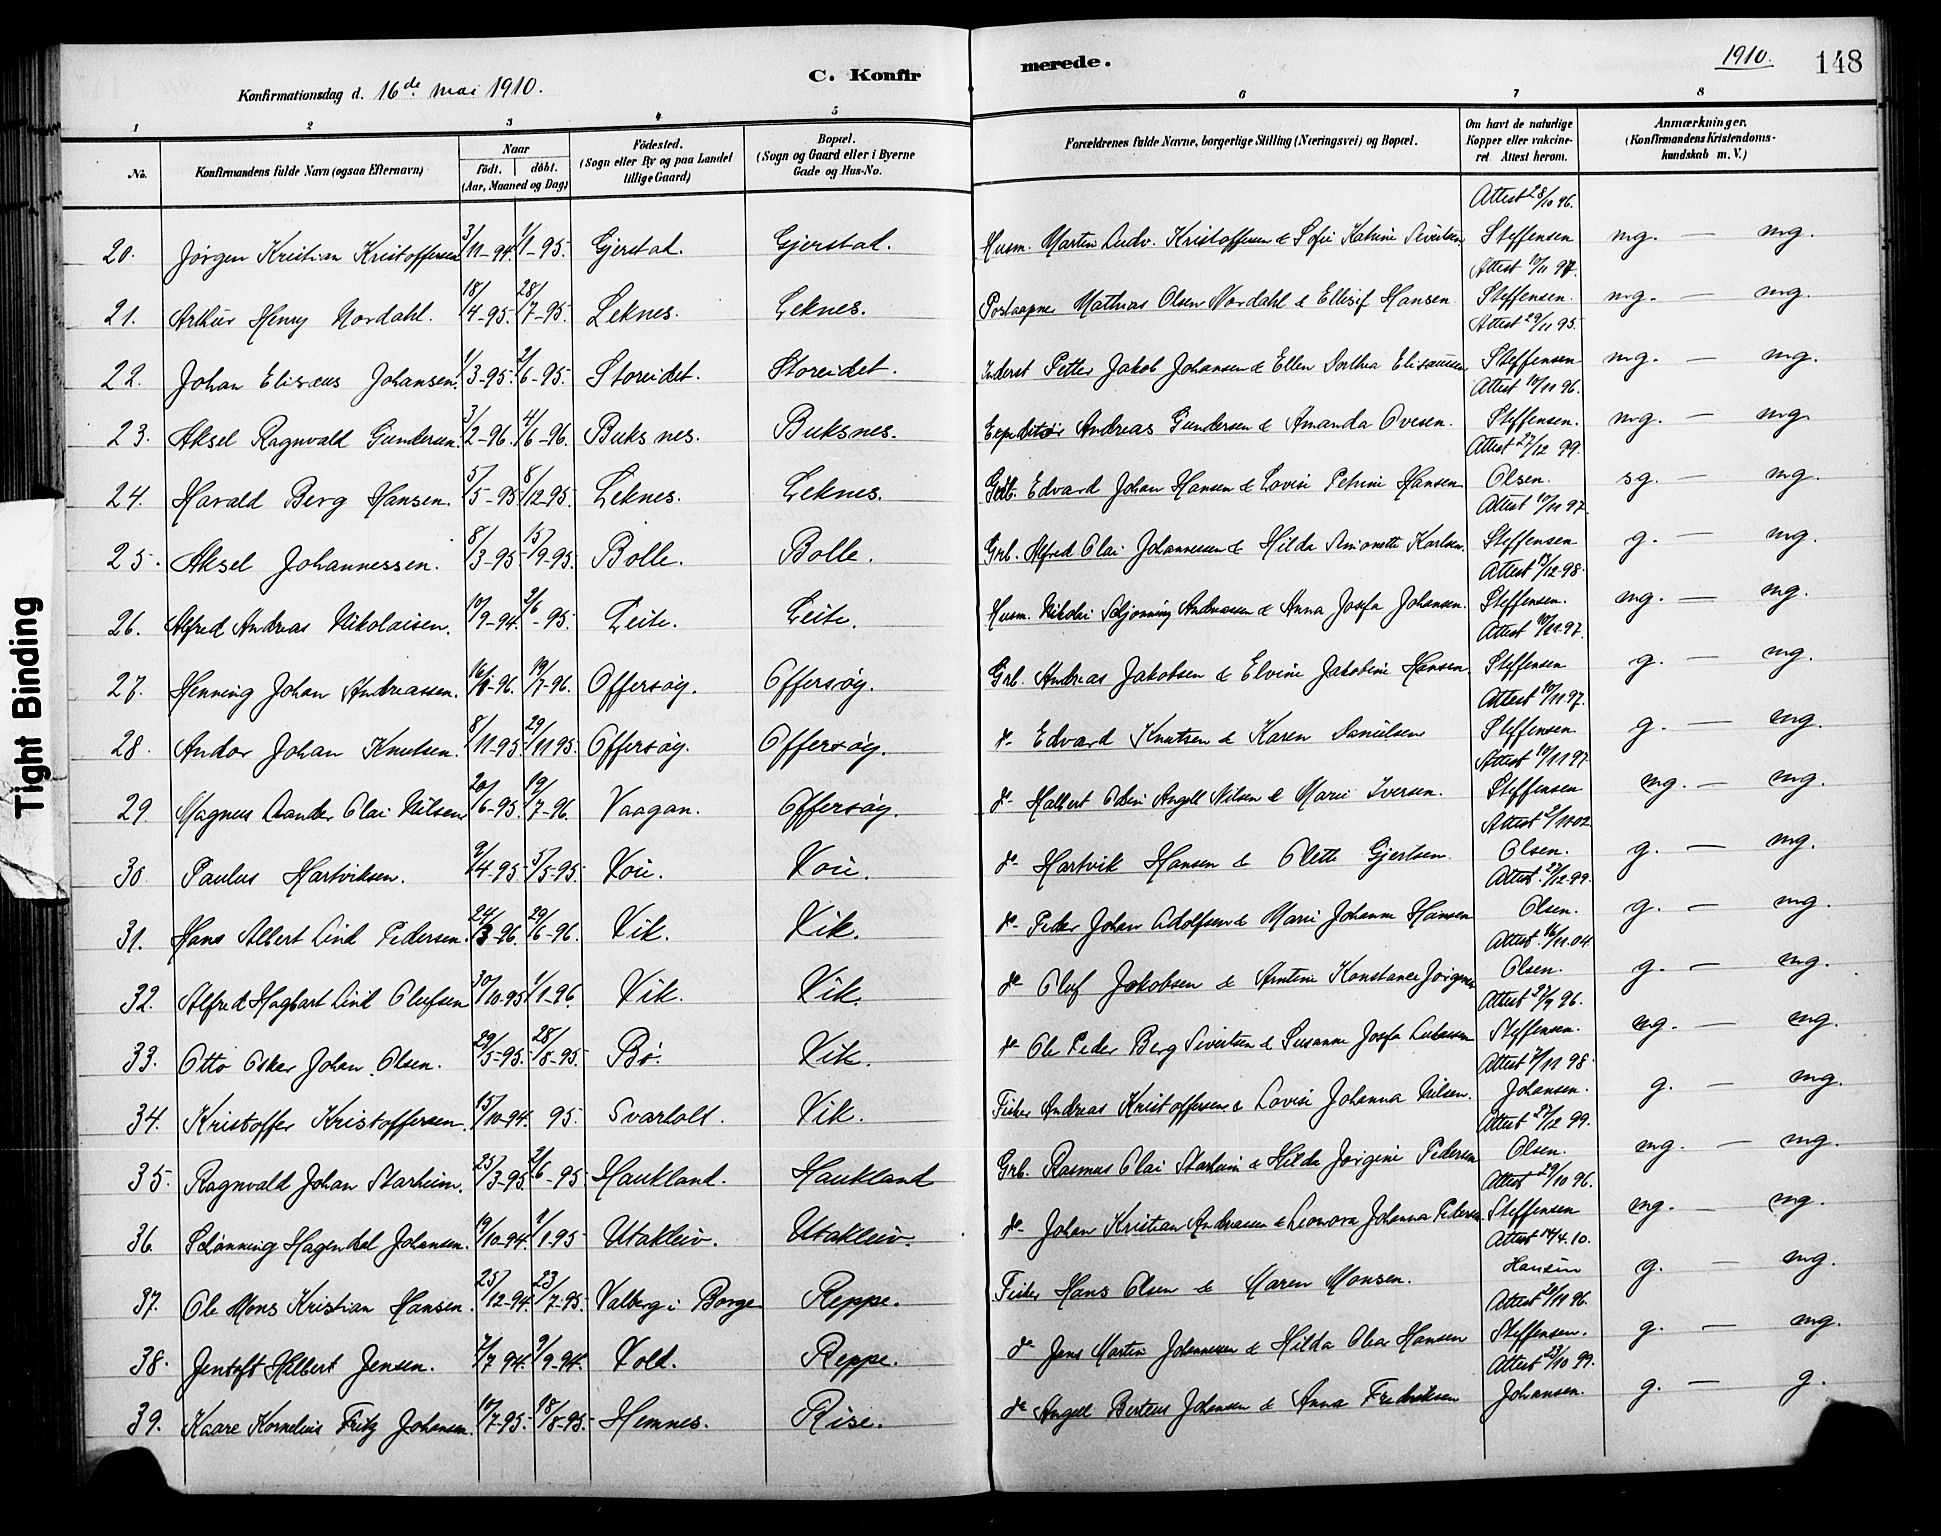 Konfirmationsdag d. 16de mai 1910.
C. Konfir
merede.
1910.
148
1
2
3
4
5
6
7
8
No.
Konfirmandens fulde Navn (ogsaa Efternavn)
Naar
födt.
döbt.
(Aar, Maaned og Dag)
Födested.
(Sogn eller By og paa Landet
tillige Gaard)
Bopæl.
(Sogn og Gaard eller i Byerne
Gade og Hus-No.
Forældrenes fulde Navne, borgerlige Stilling (Næringsvei) og Bopæl.
Om havt de naturlige
Kopper eller vakcine-
ret. Attest herom.
Anmærkninger.
(Konfirmandens Kristendoms-
kundskab m. V.)
Attest 28/10 96.
20. Jørgen Kristian Kristoffersen 3/11-94. 1/1-95. Gjerstad. Gjerstad. Husm. Martin Ludv. Kristoffersen & Sofie Katrine Sivertsen Steffensen mg. — mg.
Attest 10/11 97.
21. Arthur Henry Nordahl. 18/4-95. 28/7-95. Leknes. Leknes. Postaapner Mathias Olsen Nordahl & Ellesif Hansen. Steffensen. mg. — mg.
Attest 29/11 95.
22. Johan Elisæus Johansen. 1/3-95. 2/6-95. Storeidet. Storeidet. Inderst Petter Jakob Johansen & Ellen Dorthea Elisæussen Steffensen mg. — mg.
Attest 10/11 96.
23. Aksel Ragnvald Gundersen. 3/2-96. 4/6-96. Buksnes. Buksnes. Expeditør Andreas Gundersen & Amanda Ovesen. Steffensen. mg. — mg.
Attest 27/12 99.
24. Harald Berg Hansen. 5/5-95 8/12-95. Leknes. Leknes. Edvard Johan Hansen & Lovise Petrine Hansen Olsen. sg. — mg.
Attest 10/11 97.
25. Aksel Johannessen. 8/3-95 15/9-95. Bolle. Bolle. Grb. Alfred Olai Johannessen & Hilda Simonette Karlsen. Steffensen g. — mg.
Attest 12-98.
26. Alfred Andreas Nikolaisen. 10/9-94. 2/6-95. Leite. Leite. Husm. Nikolai Schjønning Andreassen & Anna Josefa Johansen. Steffensen. mg. — mg.
Attest 10/11-97.
27. Henning Johan Andreassen. 16/ -96. 19/7-96. Offersøy. Offersøy. Grb. Andreas Jakobsen & Elvine Jakobine Hansen. Steffensen g. — mg.
Attest 10/11 97.
28. Andor Johan Knutsen. 8/11-95. 29/11 95. Offersøy. Offersøy. do Edvard Knutsen & Karen Danielsen Steffensen g. — mg.
Attest 10/11 97
29. Magnus Olai Nilsen 20/6-95. 19/7-96. Vaagan. Offersøy. do Halbert Odin Angell Nilsen & Marie Iversen. Steffensen mg. — mg.
30. Paulus Hartviksen. 9/4-95. 5/5-95. Voie. Voie. do Hartvik Hansen & Olette Gjertsen Olsen. g. — mg.
Attest. 27/12-99.
31. Hans Albert Lind Pedersen. 24/3-96 29/6-96. Vik. Vik. do Peder Johan Adolfsen & Marie Johanne Hansen Olsen. g. — mg.
Attest. 16/11.04
32. Alfred Hagbart Lind Olufsen 30/10-95 1/1-96. Vik. Vik. do Oluf Jakobsen & Arntine Konstance Jørgens Olsen. g. — mg.
33. Otto Oskar Johan Olsen. 29/5-95. 28/8-95. Bø. Vik. do Ole Peder Berg Sivertsen & Susanne Josefa Steffensen. mg. — mg.
Attest 7/11 98.
34. Kristoffer Kristoffersen 15/10-94. 95. Svarholt. Vik. Fisker Andreas Kristoffersen & Lovise Johanna Nilsen. Johansen. g. — mg.
Attest 27/12 99.
35. Ragnvald Johan Starheim. 25/3-95. 2/6-95 Haukland. Haukland Grb. Rasmus Olai Starheim & Hilda Jørgine Pedersen Olsen. mg. — mg.
Attest 29/10 96.
36. Schønning Hagendal Johansen. 19/10-94. 1/1-95 Utakleiv. Utakleiv. do Johan Kristian Andreassen & Leonora Johanna Pedersen Steffensen mg. — mg.
Attest 14/4.10.
37. Ole Mons Kristian Hansen. 25/12-94. 23/7-95. Valberg i Borge Reppe. Fisker Hans Olsen & Maren Monsen. Hansen g. — mg.
Attest 20/11 96.
38. Jentoft Helbert Jensen. 7/7 94. 9/9-94. Vold. Reppe. do Jens Martin Johannesen & Hilda Olea Hansen Steffensen. g. — mg.
Attest 23/10 99.
39. Kaare Kornelius Fritz Johansen. 10/7-95. 18/8-95. Hemnes. Rise. do Angell Berteus Johansen & Anna Fredriksen Johansen. g. — g.
Tight Binding